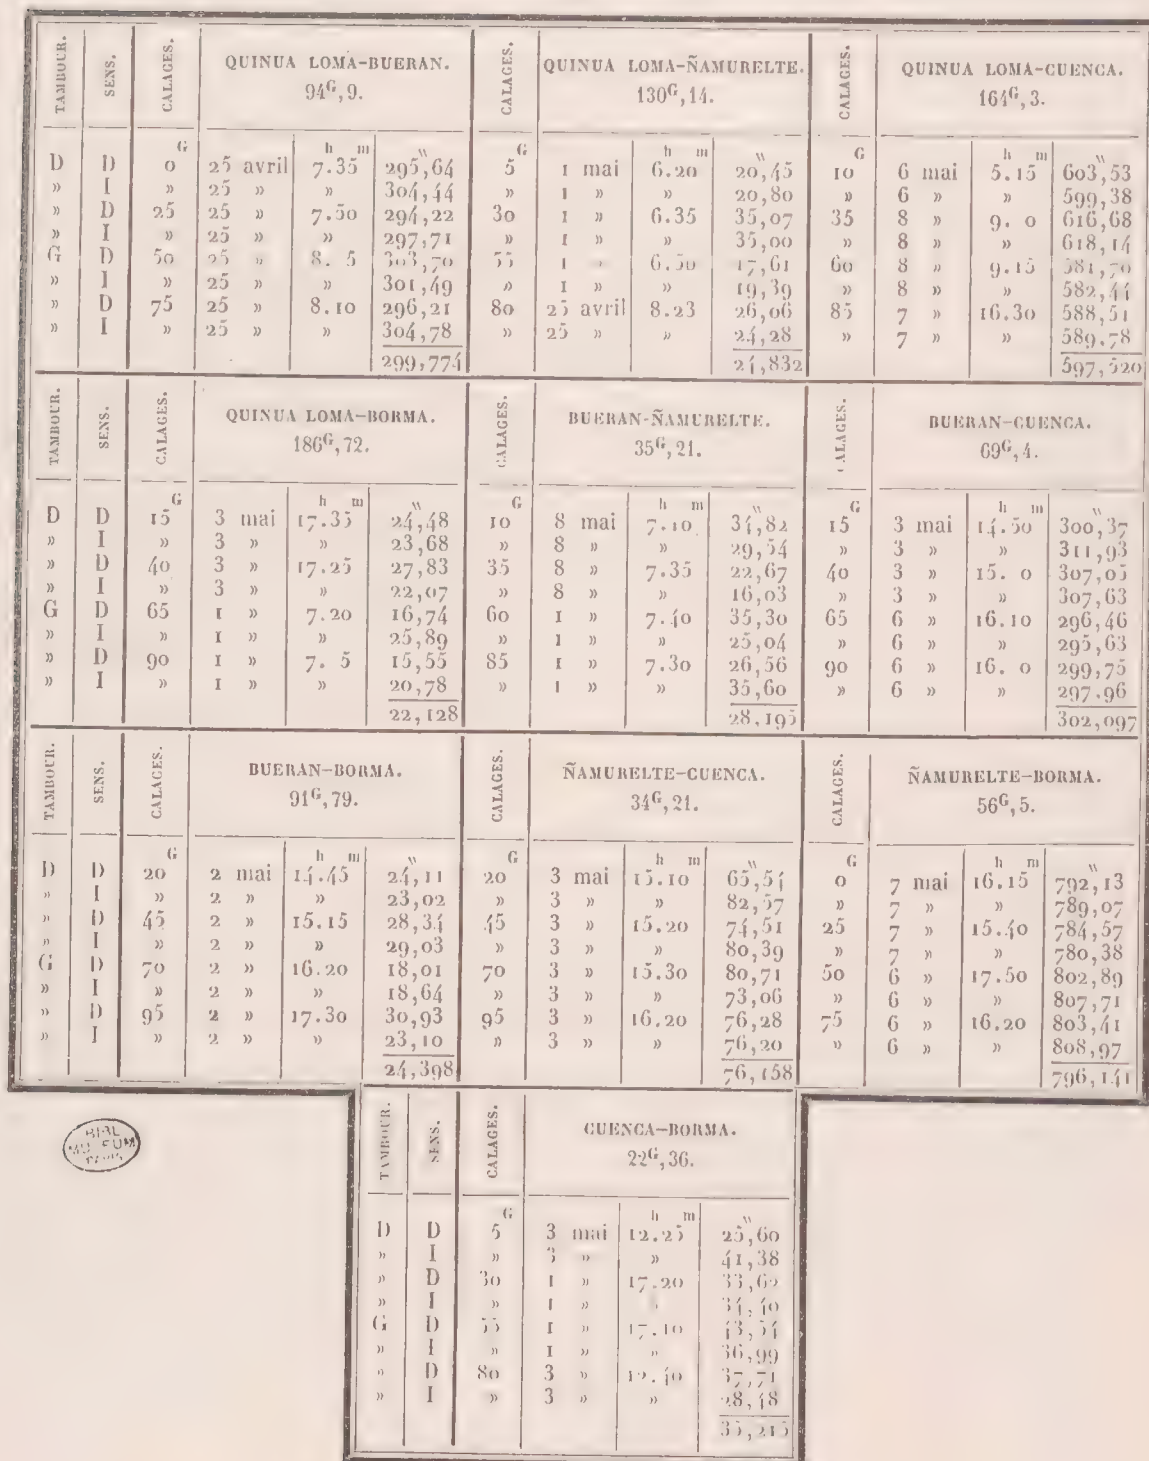 TAMBOUR. SENS. CALAGES. QUINUA LOMA-BUERAN. CALAGES. QUINUA LOMA-ÑAMURELTE. CALAGES. QUINUA LOMA-CUENCA.
94ᴳ,9. 130ᴳ,14. 164ᴳ,3.
G h m " G h m " G h m "
D D 0 25 avril 7.35 295,64 5 1 mai 6.20 20,45 10 6 mai 5.15 603,53
» I » 25 » » 304,44 » 1 » » 20,80 » 6 » » 599,38
» D 25 25 » 7.50 294,22 30 1 » 6.35 35,07 35 8 » 9. 0 616,68
» I » 25 » » 297,71 » 1 » » 35,00 » 8 » » 618,14
G D 50 25 » 8. 5 303,70 55 1 » 6.50 17,61 60 8 » 9.15 581,70
» I » 25 » » 301,49 » 1 » » 19,39 » 8 » » 582,44
» D 75 25 » 8.10 296,21 80 25 avril 8.23 26,06 85 7 » 16.30 588,51
» I » 25 » » 304,78 » 25 » » 24,28 » 7 » » 589,78
299,774 24,832 597,520
TAMBOUR. SENS. CALAGES. QUINUA LOMA-BORMA. CALAGES. BUERAN-ÑAMURELTE. CALAGES. BUERAN-CUENCA.
186ᴳ,72. 35ᴳ,21. 69ᴳ,4.
G h m " G h m " G h m "
D D 15 3 mai 17.35 24,48 10 8 mai 7.10 34,82 15 3 mai 14.50 300,37
» I » 3 » » 23,68 » 8 » » 29,54 » 3 » » 311,93
» D 40 3 » 17.25 27,83 35 8 » 7.35 22,67 40 3 » 15. 0 307,05
» I » 3 » » 22,07 » 8 » » 16,03 » 3 » » 307,63
G D 65 1 » 7.20 16,74 60 1 » 7.40 35,30 65 6 » 16.10 296,46
» I » 1 » » 25,89 » 1 » » 25,04 » 6 » » 295,63
» D 90 1 » 7. 5 15,55 85 1 » 7.30 26,56 90 6 » 16. 0 299,75
» I » 1 » » 20,78 » 1 » » 35,60 » 6 » » 297,96
22,128 28,195 302,097
TAMBOUR. SENS. CALAGES. BUERAN-BORMA. CALAGES. ÑAMURELTE-CUENCA. CALAGES. ÑAMURELTE-BORMA.
91ᴳ,79. 34ᴳ,21. 56ᴳ,5.
G h m " G h m " G h m "
D D 20 2 mai 14.45 24,11 20 3 mai 15.10 65,54 0 7 mai 16.15 792,13
» I » 2 » » 23,02 » 3 » » 82,57 » 7 » » 789,07
» D 45 2 » 15.15 28,34 45 3 » 15.20 74,51 25 7 » 15.40 784,57
» I » 2 » » 29,03 » 3 » » 80,39 » 7 » » 780,38
G D 70 2 » 16.20 18,01 70 3 » 15.30 80,71 50 6 » 17.50 802,89
» I » 2 » » 18,64 » 3 » » 73,06 » 6 » » 807,71
» D 95 2 » 17.30 30,93 95 3 » 16.20 76,28 75 6 » 16.20 803,41
» I » 2 » » 23,10 » 3 » » 76,20 » 6 » » 808,97
24,398 76,158 796,141
TAMBOUR. SENS. CALAGES. CUENCA-BORMA.
22ᴳ,36.
G h m "
D D 5 3 mai 12.25 25,60
» I » 3 » » 41,38
» D 30 1 » 17.20 33,62
» I » 1 » » 34,40
G D 55 1 » 17.10 43,54
» I » 1 » » 36,99
» D 80 3 » 12.40 37,71
» I » 3 » » 28,48
35,215
BIBL
MUSEUM
PARIS